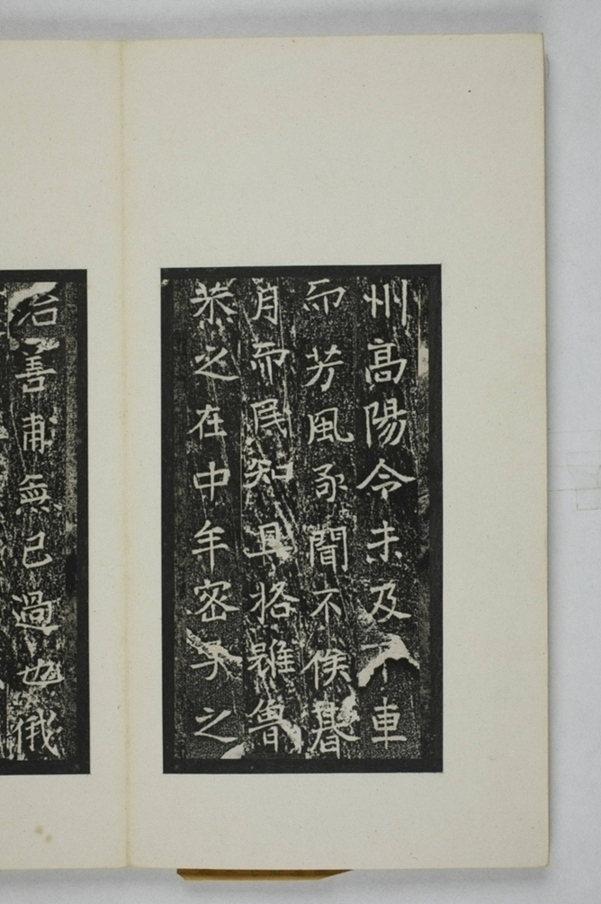 州高陽令未及下車
而芳風聞不俟
月而民知且格雖魯
恭之在中牟密子之
治善甫無已過也俄